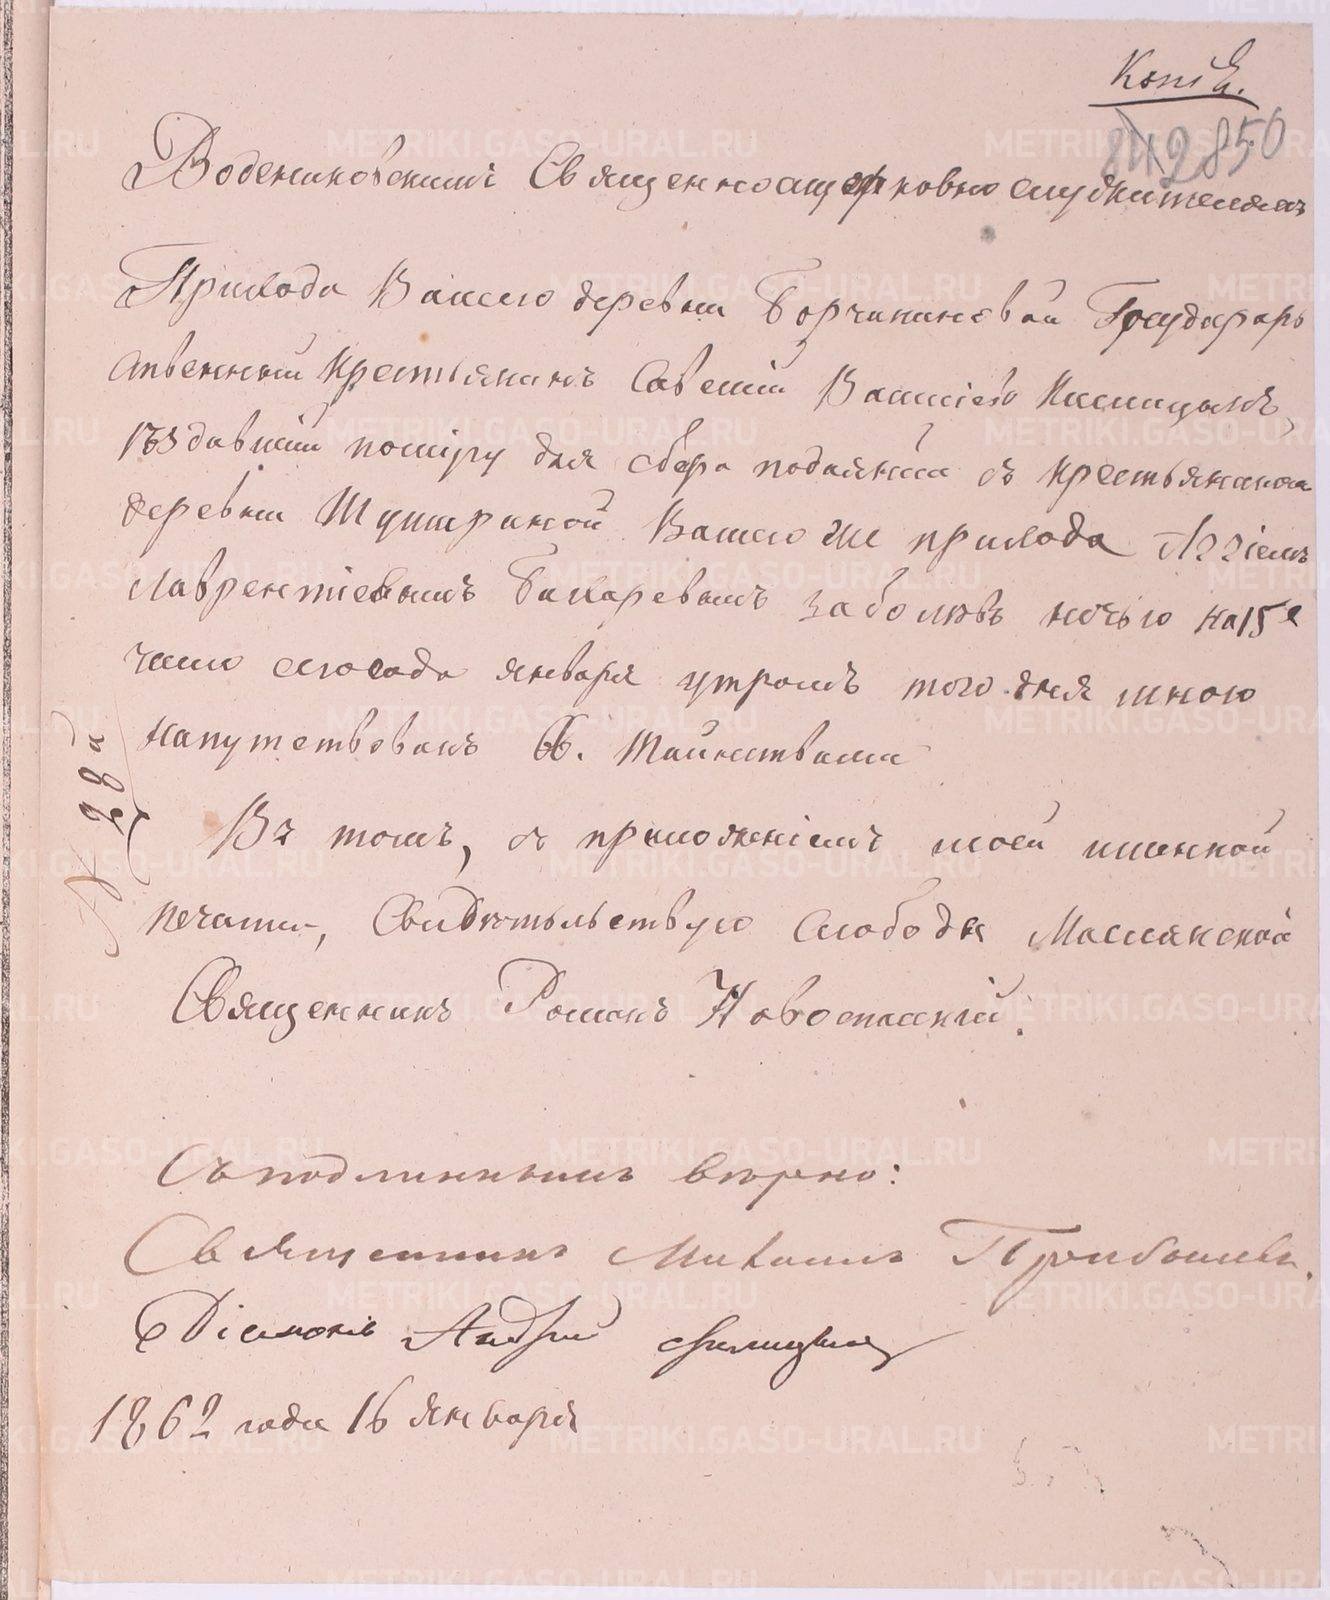 Копія.
850
Воденниковскимъ Священноцерковнослужителямъ
Прихода Вашего деревни Борчаниновой Государ
ственный крестьянинъ Савелій Васильевъ
ѣздавшій по міру для сбора подаяній съ крестьяниномъ
деревни Шушариной Вашего же прихода
Лаврентіевымъ Бахаревымъ заболѣвъ ночью на 15е
число сего года января утромъ того дня мною
напутствованъ Св. Тайнствами
Въ томъ, съ приложеніемъ моей имянной
печати, свидѣтельствую слободы Маслянской
Священникъ Романъ Новоспасскій.
№ 28й
Съ подлиннымъ вѣрно:
Священникъ Михаилъ
Діаконъ Андрей
1862 года 16 января
METRIKI.GASO-URAL.RU